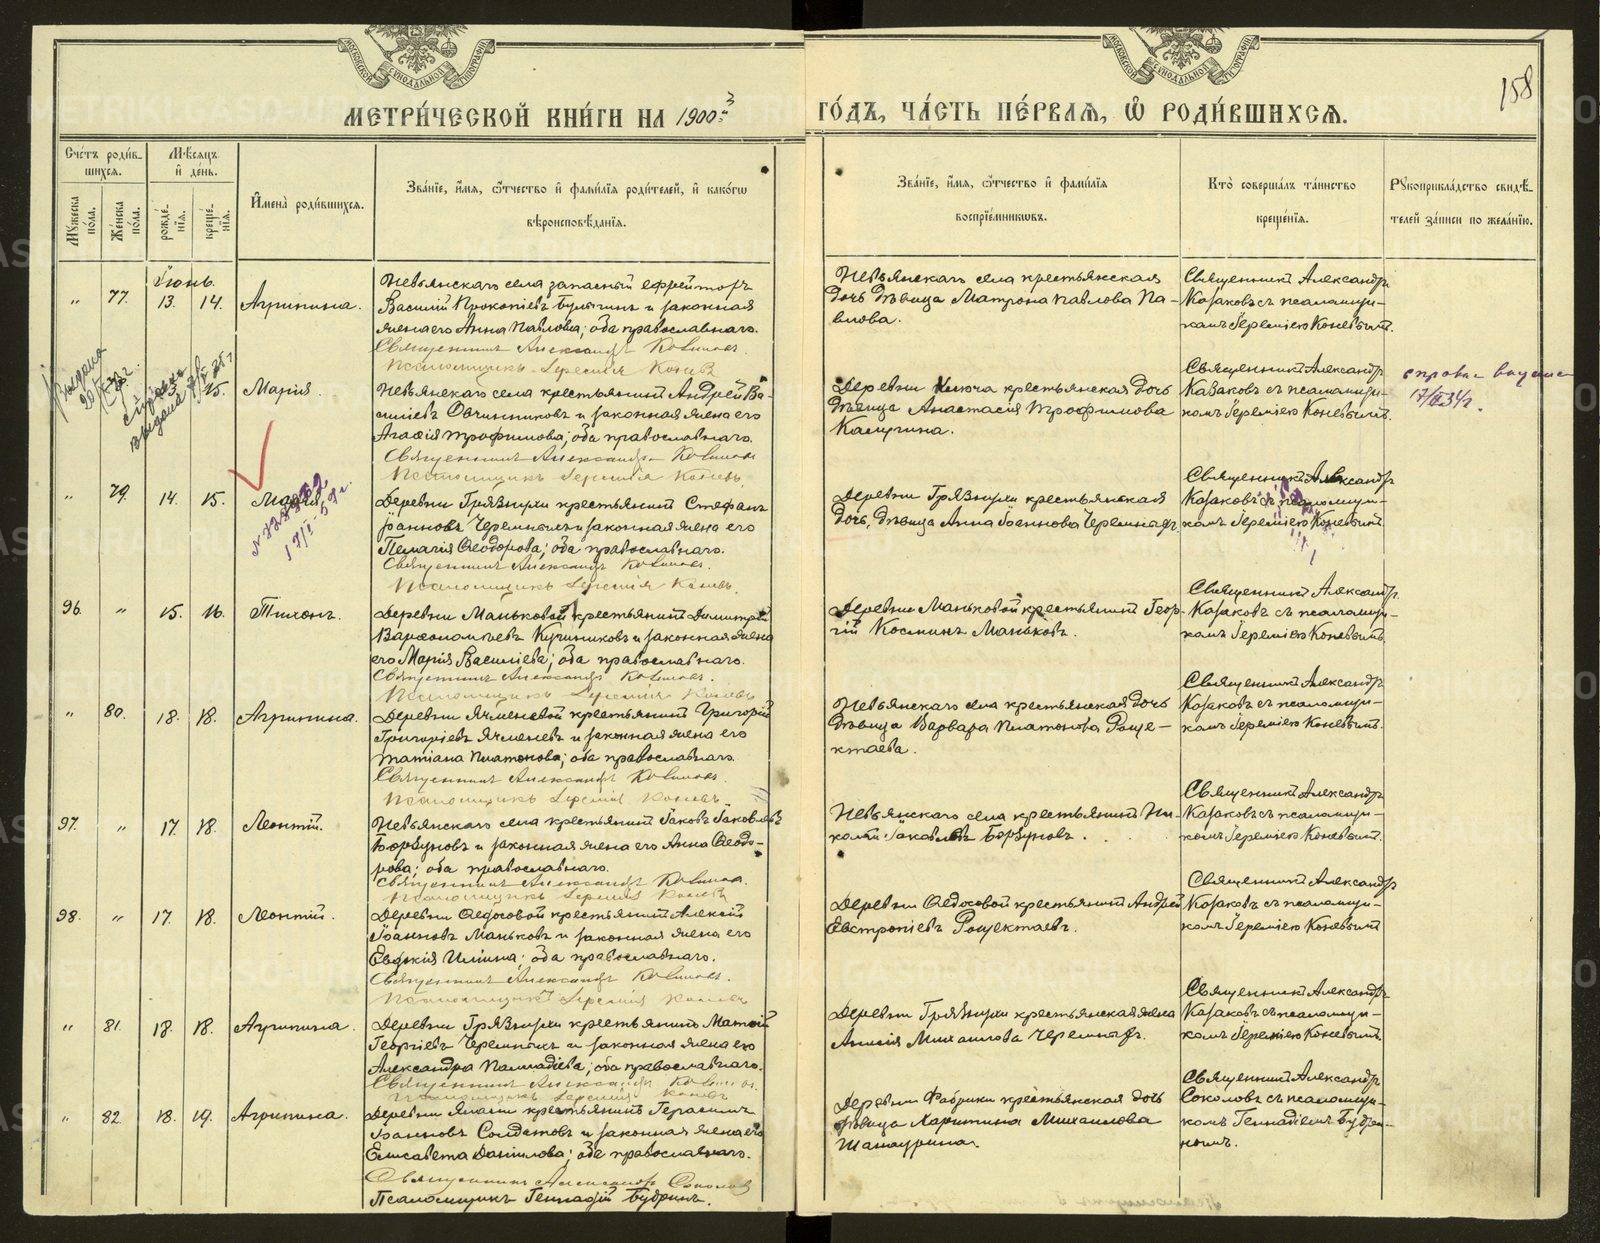 158
МЕТРИ́ЧЕСКОЙ КНИ́ГИ НА 1900 3 ГО́ДЪ, ЧА́СТЬ ПЕ́РВАЯ, Ѽ РОДИ́ВШИХСЯ.
Сче́тъ роди́в-
шихся.
Мѣ́сяцъ
и҆ де́нь.
Мꙋ́жеска по́ла.
Же́нска по́ла.
рожде́-
нїѧ.
креще́-
нїѧ.
И҆мена̀ роди́вшихся.
Зва́нїе, и҆́мя, ѻ҆́тчество и҆ фами́лїя роди́телей, и҆ како́гѡ
вѣроисповѣ́данїѧ.
Зва́нїе, и҆́мя, ѻ҆́тчество и҆ фами́лїя
воспрїе́мниковъ.
Кто̀ соверша́лъ та́инство
креще́нїѧ.
Рꙋкоприкла́дство свидѣ́-
телей за́писи по жела́нїю.
Іюнь.
„ 77. 13. 14. Агрипина.
Невьянскаго села запасный ефрейторъ
Василій Прокопіевъ Булыгинъ и законная
жена его Анна Павлова; оба православнаго.
Священникъ Александръ Казаковъ.
Псаломщикъ Іеремія Коневъ
Невьянскаго села крестьянская
дочь дѣвица Матрона Павлова Па-
влова.
Священникъ Александръ
Казаковъ съ псаломщи-
комъ Іереміею Коневымъ.
15. Марія.
Невьянскаго села крестьянинъ Андрей Ва-
силіевъ Овчинниковъ и законная жена его
Агафія Трофимова; оба православнаго.
Священникъ Александръ Казаковъ
Псаломщикъ Іеремія Коневъ.
Деревни Ключа крестьянская дочь
дѣвица Анастасія Трофимова
Калугина.
Священникъ Александръ
Казаковъ съ псаломщи-
комъ Іереміею Коневымъ.
справка
„ 79. 14. 15. Марія.
Деревни Грязнухи крестьянинъ Стефанъ
Іоанновъ Черемныхъ и законная жена его
Пелагія Ѳеодорова; оба православнаго.
Священникъ Александръ Казаковъ.
Псаломщикъ Іеремія Коневъ.
Деревни Грязнухи крестьянская
дочь, дѣвица Анна Іоаннова Черемныхъ.
Священникъ Александръ
Казаковъ съ псаломщи-
комъ Іереміею Коневымъ.
96. „ 15. 16. Тихонъ.
Деревни Маньковой крестьянинъ Димитрій
Варѳоломеевъ Кушниковъ и законная жена
его Марія Василіева; оба православнаго.
Священникъ Александръ Казаковъ.
Псаломщикъ Іеремія Коневъ
Деревни Маньковой крестьянинъ Геор-
гій Косминъ Маньковъ.
Священникъ Александръ
Казаковъ съ псаломщи-
комъ Іереміею Коневымъ.
„ 80. 18. 18. Агрипина.
Деревни Ячменевой крестьянинъ Григорій
Григоріевъ Ячменевъ и законная жена его
Татіана Платонова; оба православнаго.
Священникъ Александръ Казаковъ.
Псаломщикъ Іеремія Коневъ.
Невьянскаго села крестьянская дочь
дѣвица Варвара Платонова Роще-
ктаева.
Священникъ Александръ
Казаковъ съ псаломщи-
комъ Іереміею Коневымъ.
97. „ 17. 18. Леонтій.
Невьянскаго села крестьянинъ Іаковъ Іаковлевъ
Борзуновъ и законная жена его Анна Ѳеодо-
рова; оба православнаго.
Священникъ Александръ Казаковъ.
Псаломщикъ Іеремія Коневъ
Невьянскаго села крестьянинъ Ни-
колай Іаковлевъ Борзуновъ.
Священникъ Александръ
Казаковъ съ псаломщи-
комъ Іереміею Коневымъ
98. „ 17. 18. Леонтій.
Деревни Ѳедосовой крестьянинъ Алексій
Іоанновъ Маньковъ и законная жена его
Евдокія Иліина; оба православнаго.
Священникъ Александръ Казаковъ.
Псаломщикъ Іеремія Коневъ
Деревни Ѳедосовой крестьянинъ Андрей
Евстропіевъ Рощектаевъ.
Священникъ Александръ
Казаковъ съ псаломщи-
комъ Іереміею Коневымъ
„ 81. 18. 18. Агрипина.
Деревни Грязнухи крестьянинъ Матѳій
Георгіевъ Черемныхъ и законная жена его
Александра Палладіева; оба православнаго.
Священникъ Александръ Казаковъ.
Псаломщикъ Іеремія Коневъ
Деревни Грязнухи крестьянская жена
Анисія Михаилова Черемныхъ.
Священникъ Александръ
Казаковъ съ псаломщи-
комъ Іереміею Коневымъ.
„ 82. 18. 19. Агрипина.
Деревни Ялани крестьянинъ Герасимъ
Іоанновъ Солдатовъ и законная жена его
Елисавета Даніилова; оба православнаго.
Священникъ Александръ Соколовъ
Псаломщикъ Геннадій Бубринъ.
Деревни Фабрики крестьянская дочь
дѣвица Харитина Михаилова
Шанаурина.
Священникъ Александръ
Соколовъ съ псаломщи-
комъ Геннадіемъ Бубри-
нымъ.